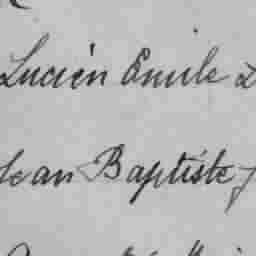 Lucien Emile
Jean Baptiste